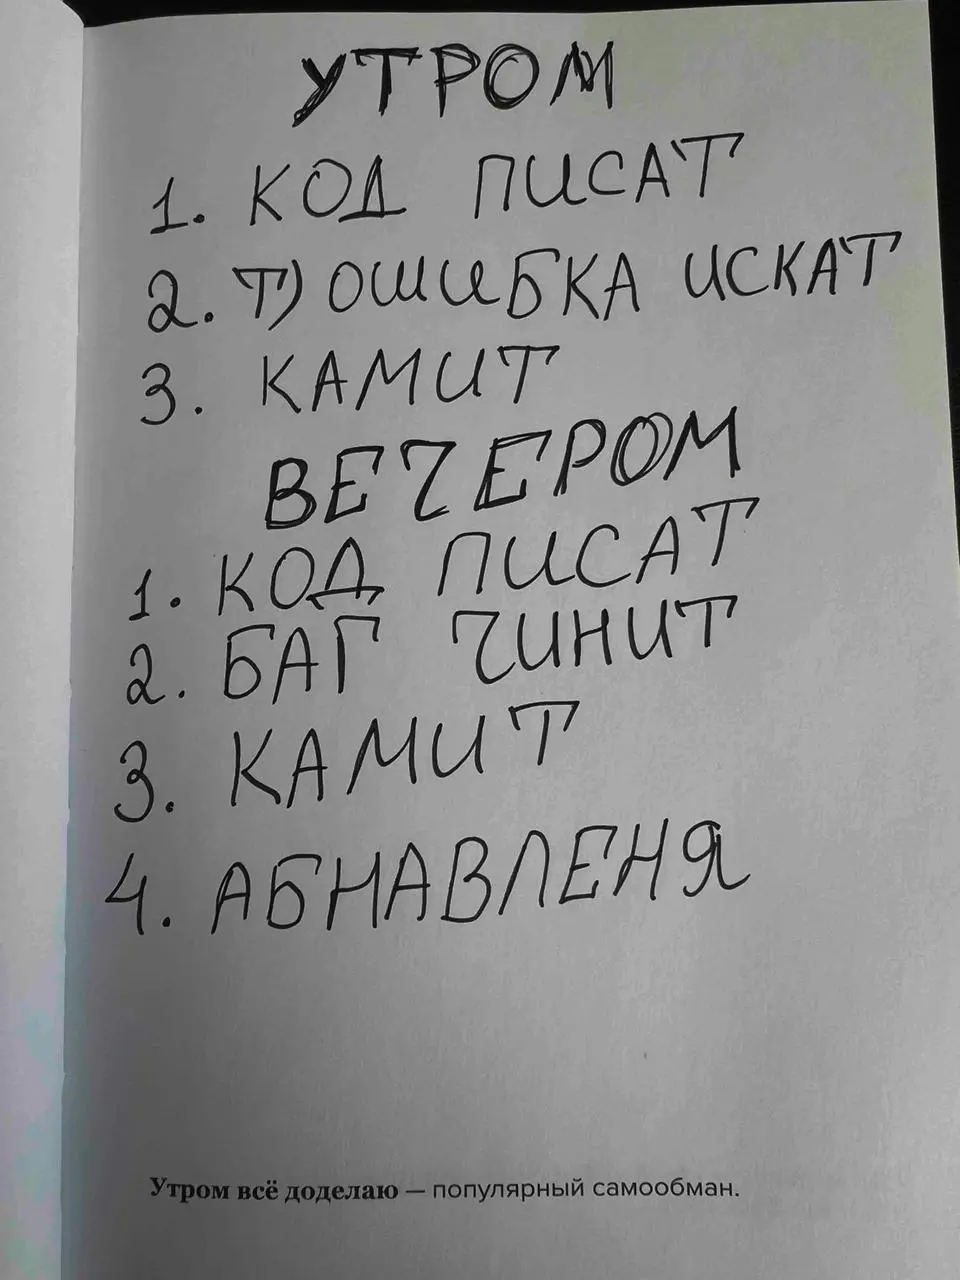 УТРОМ
1. КОД ПИСАТ
2. Т) ОШИБКА ИСКАТ
3. КАМИТ
ВЕЧЕРОМ
1. КОД ПИСАТ
2. БАГ ЧИНИТ
3. КАМИТ
4. АБНАВЛЕНЯ
Утром всё доделаю — популярный самообман.